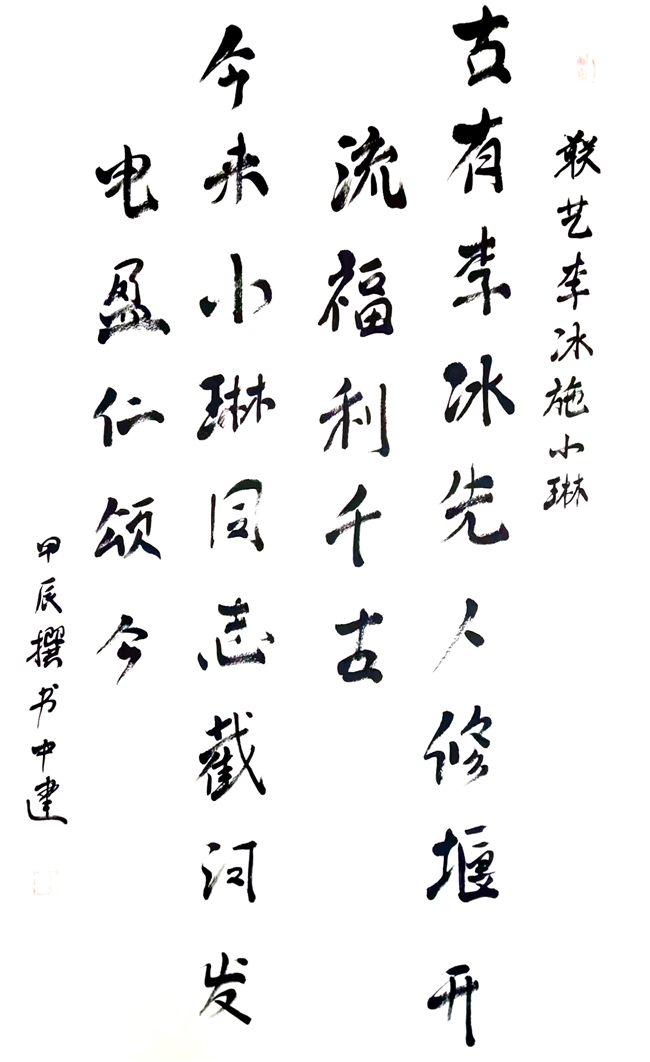 联艺李冰施小琳
古有李冰先人修堰开
流福利千古
今来小琳同志截河发
电盈仁颂今
甲辰撰书中建